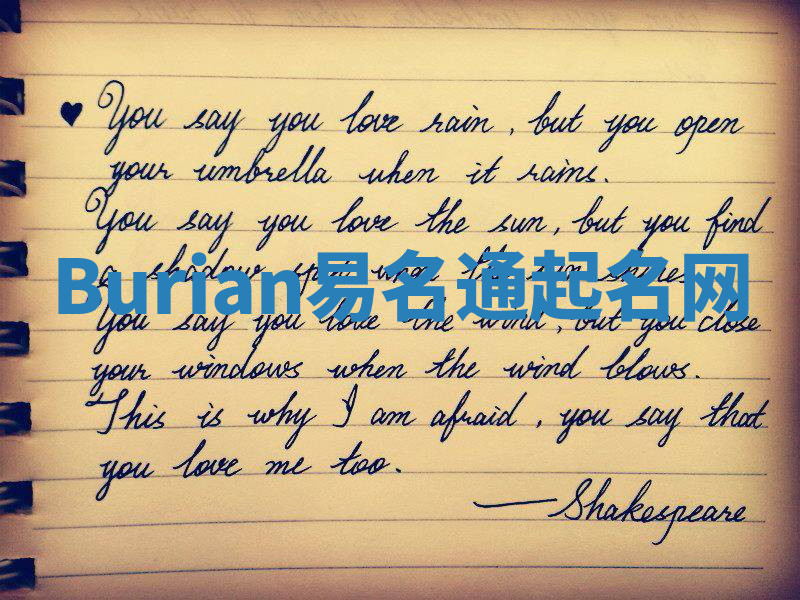 ♥ You say you love rain, but you open
your umbrella when it rains.
You say you love the sun, but you find
a shadow spot when the sun shines.
Burian易名通起名网
You say you love the wind, but you close
your windows when the wind blows.
This is why I am afraid, you say that
you love me too.
—Shakespeare